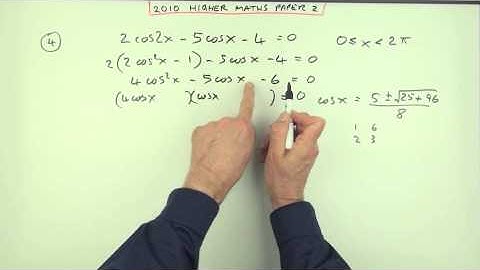 2010 HIGHER MATHS PAPER 2
4
2cos2x - 5cosx - 4 = 0
0 ≤ x < 2π
2(2cos²x - 1) - 5cosx - 4 = 0
4cos²x - 5cosx - 6 = 0
(4cosx )(cosx ) = 0
cosx = 5 ± √25 + 96
8
1 6
2 3